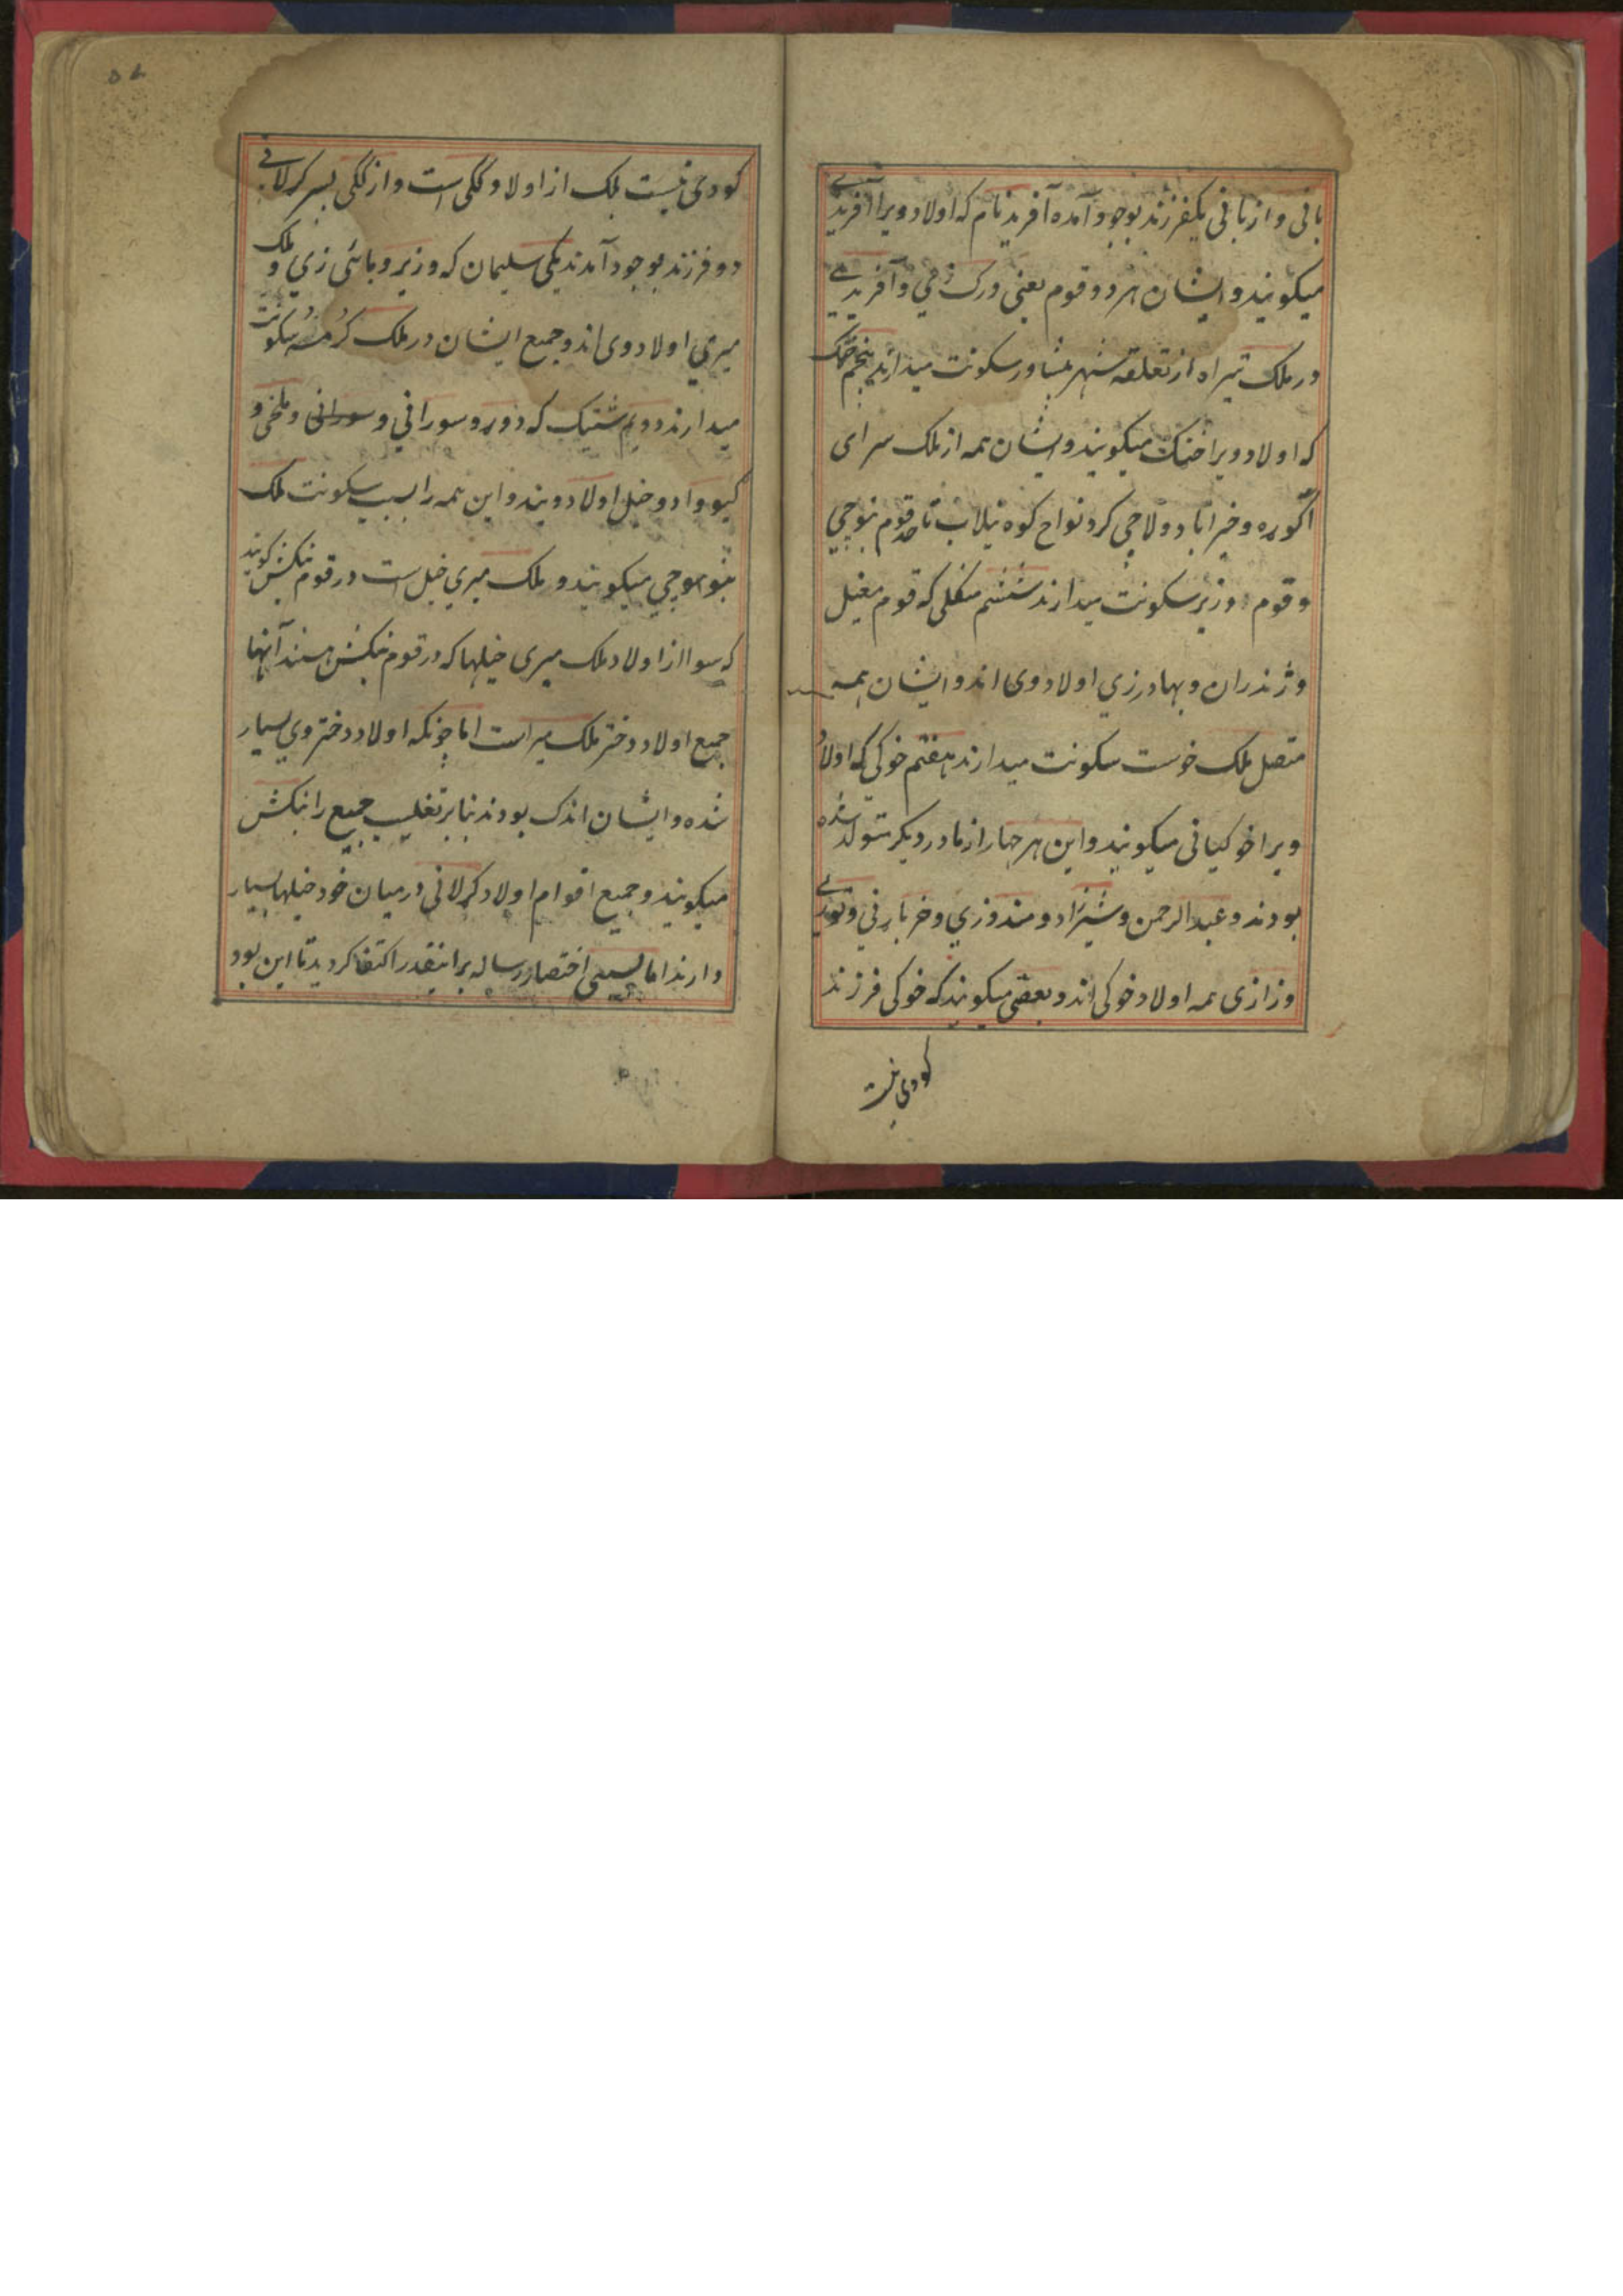 بافی و از بافی یکفرزند بوجود آمده آفرید نام که اولاد ویرا آفریدے
میکویند و ایشان هر دو قوم یعنی ورک زمي و آفریدے
در ملک تیراه از تعلقه شهر پشاور سکونت میدارند پنجم خټک
که اولاد ویرا خټک میکویند و ایشان همه از ملک سرای
اکوره و خیراباد و لاچي کرد نواح کوه نیلاب تا حد قوم بنوچي
و قوم وزیر سکونت میدارند ششم منکلی که قوم مغیل
و ژندران و بهادرزي اولاد وی اند و ایشان همه
متصل ملک خوست سکونت میدارند هفتم خوکی که اولاد
ویرا خوکیانی میکویند و این هر چهار از مادر دیکر متولد شده
بودند و عبدالرحمن و شیرزاد و مندوزي و خربارني و توریے
وزازی همه اولاد خوکی اند و بعضی میکویند که خوکی فرزند
کودی نیست
۵۷
کودی نیست بلک از اولاد ککی است و از ککی پسر کرلانے
دو فرزند بوجود آمدند یکی سلیمان که وزیر و بائی زي و ملک
میري اولاد وی اند و جمیع ایشان در ملک کرمه سکونت
میدارند دویم شتیک که دوړ و سورانی و سورانی و ملخی و
کیو و ادو خیل اولاد ویند و این همه را بسبب سکونت ملک
بنو بنوچي میکویند و ملک میري خیل است در قوم بنکش کویند
که سوا از اولاد ملک میری خیلها که در قوم بنکش هستند آنها
جمیع اولاد دختر ملک میر است اما چونکه اولاد دختر وي بسیار
شده و ایشان اندک بودند بنابر تغلیب جمیع را بنکش
میکویند و جمیع اقوام اولاد کرلانی درمیان خود خیلها بسیار
دارند اما بسعی اختصار رساله برانیقدر اکتفا کردید تا این بود